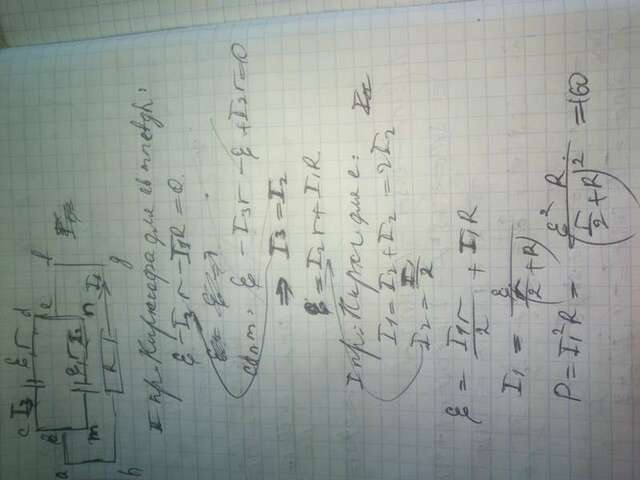 c I₃ ε, r d
a b e f
m ε, r I₂ n
h R I₁ g
II пр. Кирхгофа для
ε - I₃ r - I₁R = 0
cdnm: ε - I₃r - ε + I₂r = 0
⇒ I₃ = I₂
ε = I₂r + I₁R
I пр. Кирхг для e:
I₁ = I₂ + I₂ = 2I₂
I₂ = I₁/2
ε = I₁r/2 + I₁R
I₁ = ε/(r/2 + R)
P = I₁²R = ε² R/(r/2 + R)² = 160